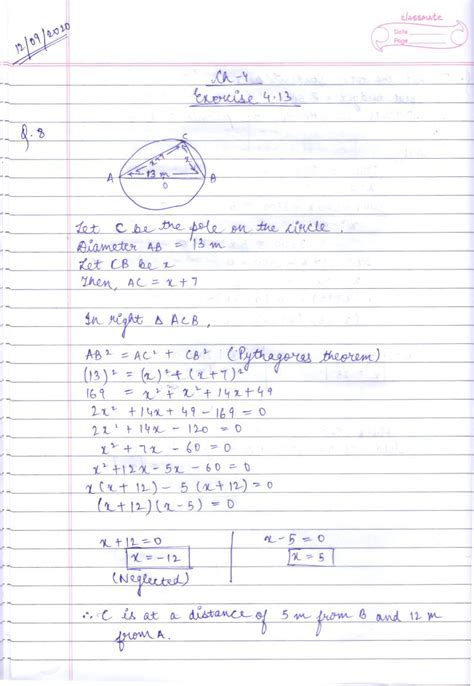 classmate
Date
Page
12/09/2020
Ch-4
Exercise 4.13
Q.8
C
x+7
x
A
13 m
B
O
Let C be the pole on the circle.
Diameter AB = 13 m
Let CB be x
Then, AC = x+7
In right Δ ACB,
AB² = AC² + CB² (Pythagoras theorem)
(13)² = (x)² + (x+7)²
169 = x² + x² + 14x + 49
2x² + 14x + 49 - 169 = 0
2x² + 14x - 120 = 0
x² + 7x - 60 = 0
x² + 12x - 5x - 60 = 0
x(x+12) - 5(x+12) = 0
(x+12)(x-5) = 0
x+12=0
x=-12
(Neglected)
x-5=0
x=5
∴ C is at a distance of 5 m from B and 12 m
from A.